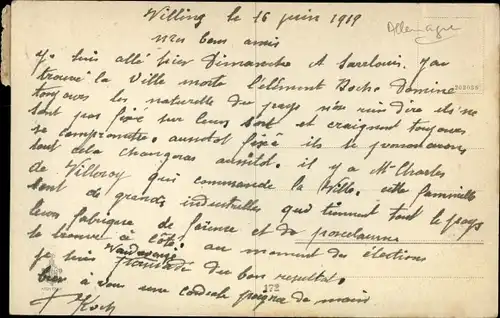 Willing le 16 juin 1919
Allemagne
Mes bons amis
J'y suis allé hier Dimanche A Sarrelouis. J'ai
trouvé la Ville morte l'élément Boche Domine
toujours les naturelle du pays n'ose rien dire ils ne
sont pas fixé sur leur sort et craignent toujours
se compromettre. aussitot fixé ils se prononcerons
tout cela changeras aussitot. il y a Mr Charles
de Villeroy qui commande la Ville. cette famille
sont de grands industrielles qui tiennent tout le pays
leurs fabrique de faience et de porcelaines
se trouve à côté. au moment des élections
je suis Vaudrevange du bon resultat.
bien à vous une cordiale poignée de main
Koch
172